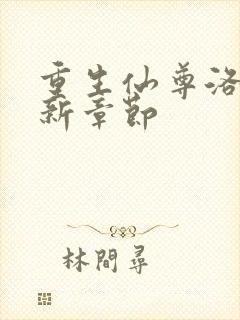 重生仙尊洛
新章節
林間尋